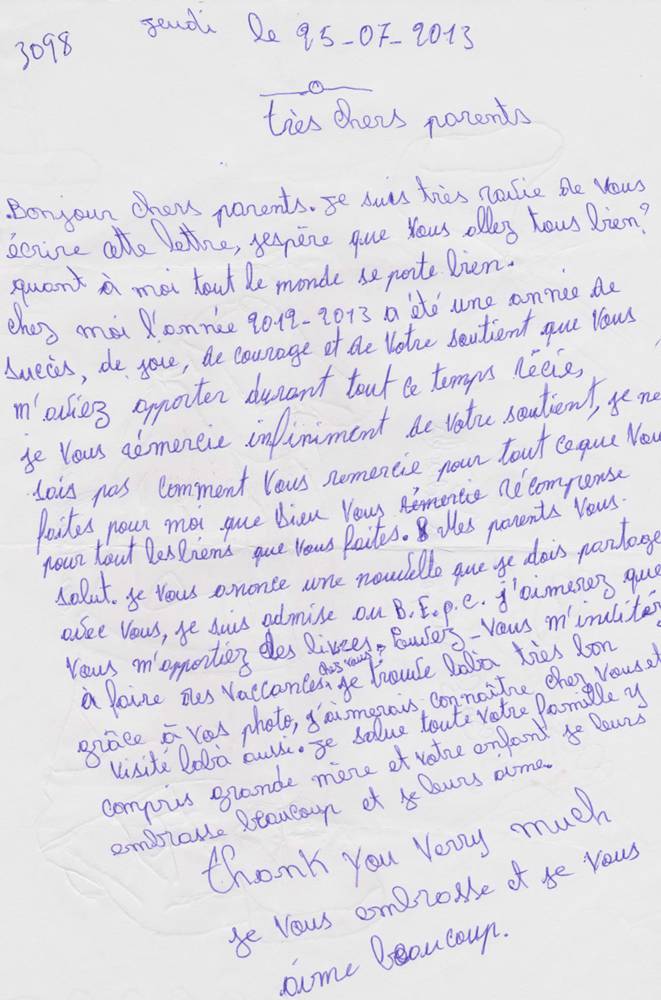 jeudi le 25-07-2013
3098
très chers parents
Bonjour chers parents. Je suis très ravie de vous
écrire cette lettre, j'espère que vous allez tous bien?
quant à moi tout le monde se porte bien.
chez moi l'année 2012-2013 a été une année de
succès, de joie, de courage et de votre soutient que vous
m'aviez apporter durant tout ce temps
je vous rémercie infiniment de votre soutient, je ne
sais pas comment vous remercie pour tout ceque vou
faites pour moi que Dieu vous rémercie récompense
pour tout les biens que vous faites. Mes parents vous
salut. Je vous anonce une nouvelle que je dois partage
avec vous, je suis admise au B.E.p.c. j'aimerez que
vous m'apportiez des livres. vous m'invitér
à faire des vaccances chez vous, je trouve labà très bon
grâce à vos photo, j'aimerais connaître chez vous et
visité labà aussi. Je salue toute votre famille y
compris grande mère et votre enfant je leurs
embrasse beaucoup et je leurs aime.
thank you verry much
je vous embrasse et je vous
aime beaucoup.